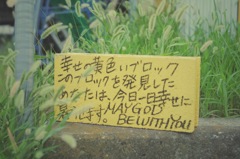 幸せの黄色いブロック
このブロックを発見した
あなたは、今日一日幸せに
暮せます。MAY GOD
BE WITH YOU